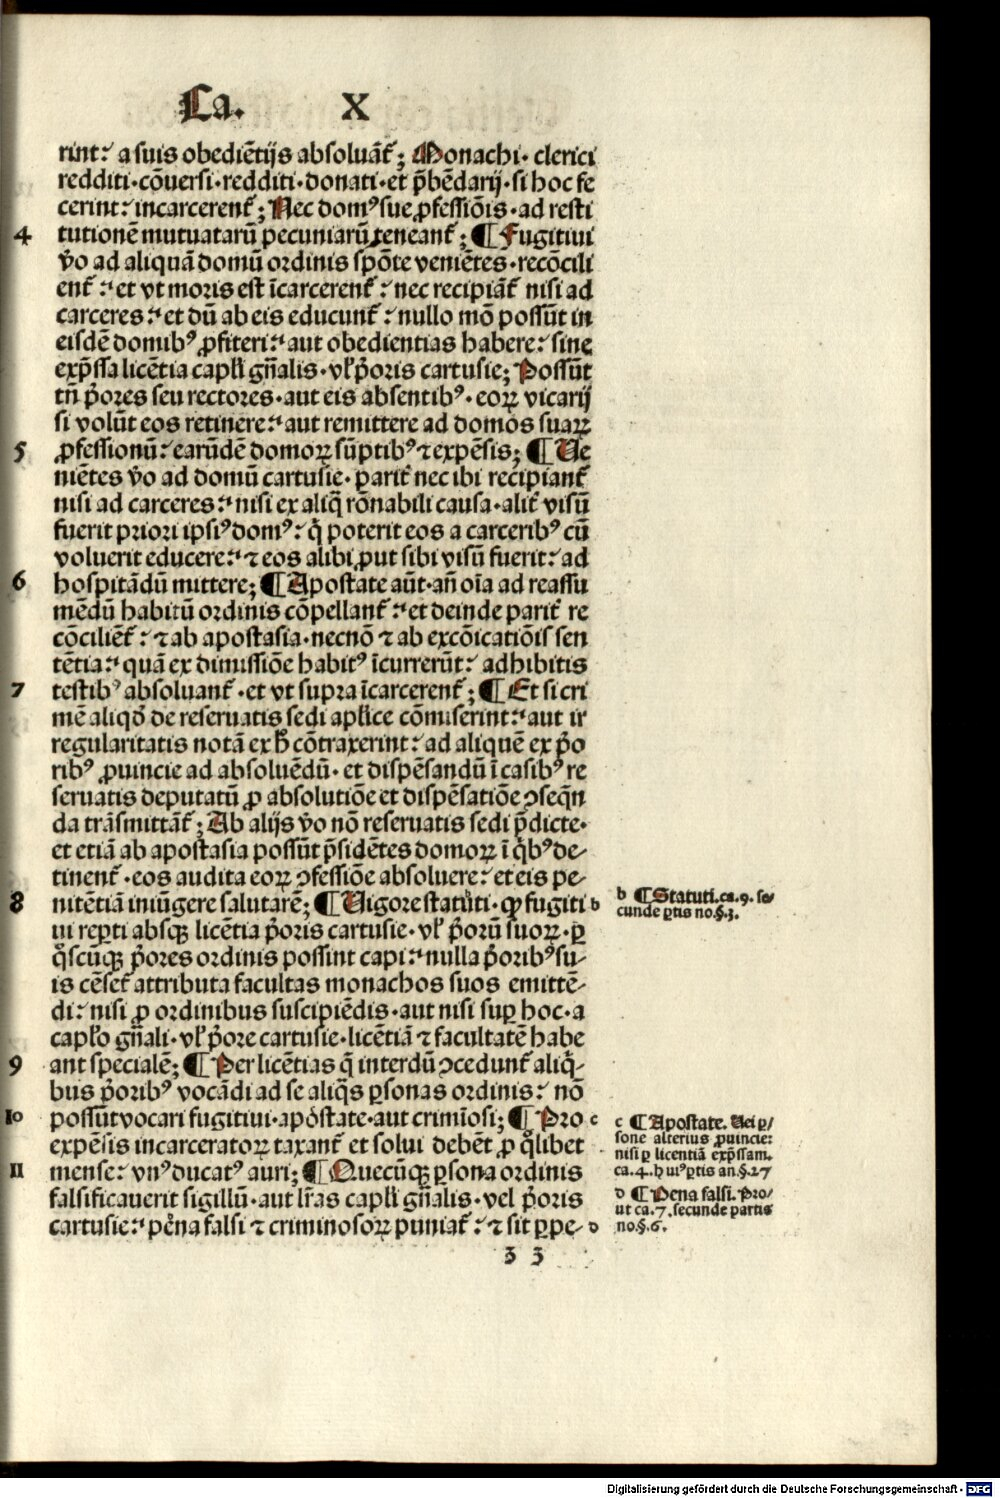 Ca. X
rint: a suis obediētijs absoluāt̄; Monachi· clerici
redditi·cōuersi·redditi·donati·et p̄bēdarij·si hoc fe
cerint: incarcerent̄; Nec domꝰ sue ꝓfessiōis·ad resti
4 tutionē mutuatarū pecuniarū teneant̄; ¶ Fugitiui
v̄o ad aliquā domū ordinis spōte veniētes·recōcili
ent̄: et vt moris est īcarcerent̄: nec recipiāt̄ nisi ad
carceres: et dū ab eis educunt̄: nullo mō possūt in
eisdē domibꝰ ꝓfiteri: aut obedientias habere: sine
exp̄ssa licētia capl̄i gn̄alis·vl̄ p̄oris cartusie; Possūt
tn̄ p̄ores seu rectores·aut eis absentibꝰ·eoꝝ vicarij
si volūt eos retinere: aut remittere ad domos suaꝝ
5 ꝓfessionū: earūdē domoꝝ sūptibꝰ ⁊ expēsis; ¶ Ue
niētes v̄o ad domū cartusie·parit̄ nec ibi recipiant̄
nisi ad carceres: nisi ex aliq̄ rōnabili causa·alit̄ visū
fuerit priori ipsiꝰ domꝰ: q̄ poterit eos a carceribꝰ cū
voluerit educere: ⁊ eos alibi ꝓut sibi visū fuerit: ad
6 hospitādū mittere; ¶ Apostate aūt·an̄ oīa ad reassu
mēdū habitū ordinis cōpellant̄: et deinde parit̄ re
cōciliēt̄: ⁊ ab apostasia·necnō ⁊ ab excōicatiōis sen
tētia: quā ex dimissiōe habitꝰ īcurrerūt: adhibitis
7 testibꝰ absoluant̄·et vt supra īcarcerent̄; ¶ Et si cri
mē aliqd̄ de reseruatis sedi apl̄ice cōmiserint: aut ir
regularitatis notā ex h̄ cōtraxerint: ad aliquē ex p̄o
ribꝰ ꝓuincie ad absoluēdū·et dispēsandū ī casibꝰ re
seruatis deputatū ꝓ absolutiōe et dispēsatiōe ꝯseqn̄
da trāsmittāt̄; Ab alijs v̄o nō reseruatis sedi p̄dicte·
et etiā ab apostasia possūt p̄sidētes domoꝝ ī q̄bꝰ de-
tinent̄·eos audita eoꝝ ꝯfessiōe absoluere: et eis pe-
8 nitētiā iniūgere salutarē; ¶ Uigore statuti·ꝙ fugiti b
ui rep̲ti absqꝫ licētia p̄oris cartusie·vl̄ p̄orū suoꝝ·ꝑ
q̄scūqꝫ p̄ores ordinis possint capi: nulla p̄oribꝰ su-
is cēset̄ attributa facultas monachos suos emittē-
di: nisi ꝓ ordinibus suscipiēdis·aut nisi suꝑ hoc·a
capl̄o gn̄ali·vl̄ p̄ore cartusie·licētiā ⁊ facultatē habe
9 ant specialē; ¶ Per licētias q̄ interdū ꝯcedunt̄ aliq̄-
bus p̄oribꝰ vocādi ad se aliq̄s ꝑsonas ordinis: nō
10 possūt vocari fugitiui·apostate·aut crimīosi; ¶ Pro c
expēsis incarceratoꝝ taxant̄ et solui debēt ꝓ q̄libet
11 mense: vnꝰ ducatꝰ auri; ¶ Quecūqꝫ ꝑsona ordinis
falsificauerit sigillū·aut l̄ras capl̄i gn̄alis·vel p̄oris
cartusie: pena falsi ⁊ criminosoꝝ puniat̄: ⁊ sit ꝑpe- d
b ¶ Statuti.ca.9. se-
cunde ꝑtis no.§.3.
c ¶ Apostate. Uel ꝑ-
sone alterius ꝓuincie:
nisi ꝑ licentiā exp̄ssam.
ca.4.h uiꝰ ꝑtis an.§.27
d ¶ Pena falsi. Pro-
ut ca.7. secunde partis
no.§.6.
3 3
Digitalisierung gefördert durch die Deutsche Forschungsgemeinschaft - DFG